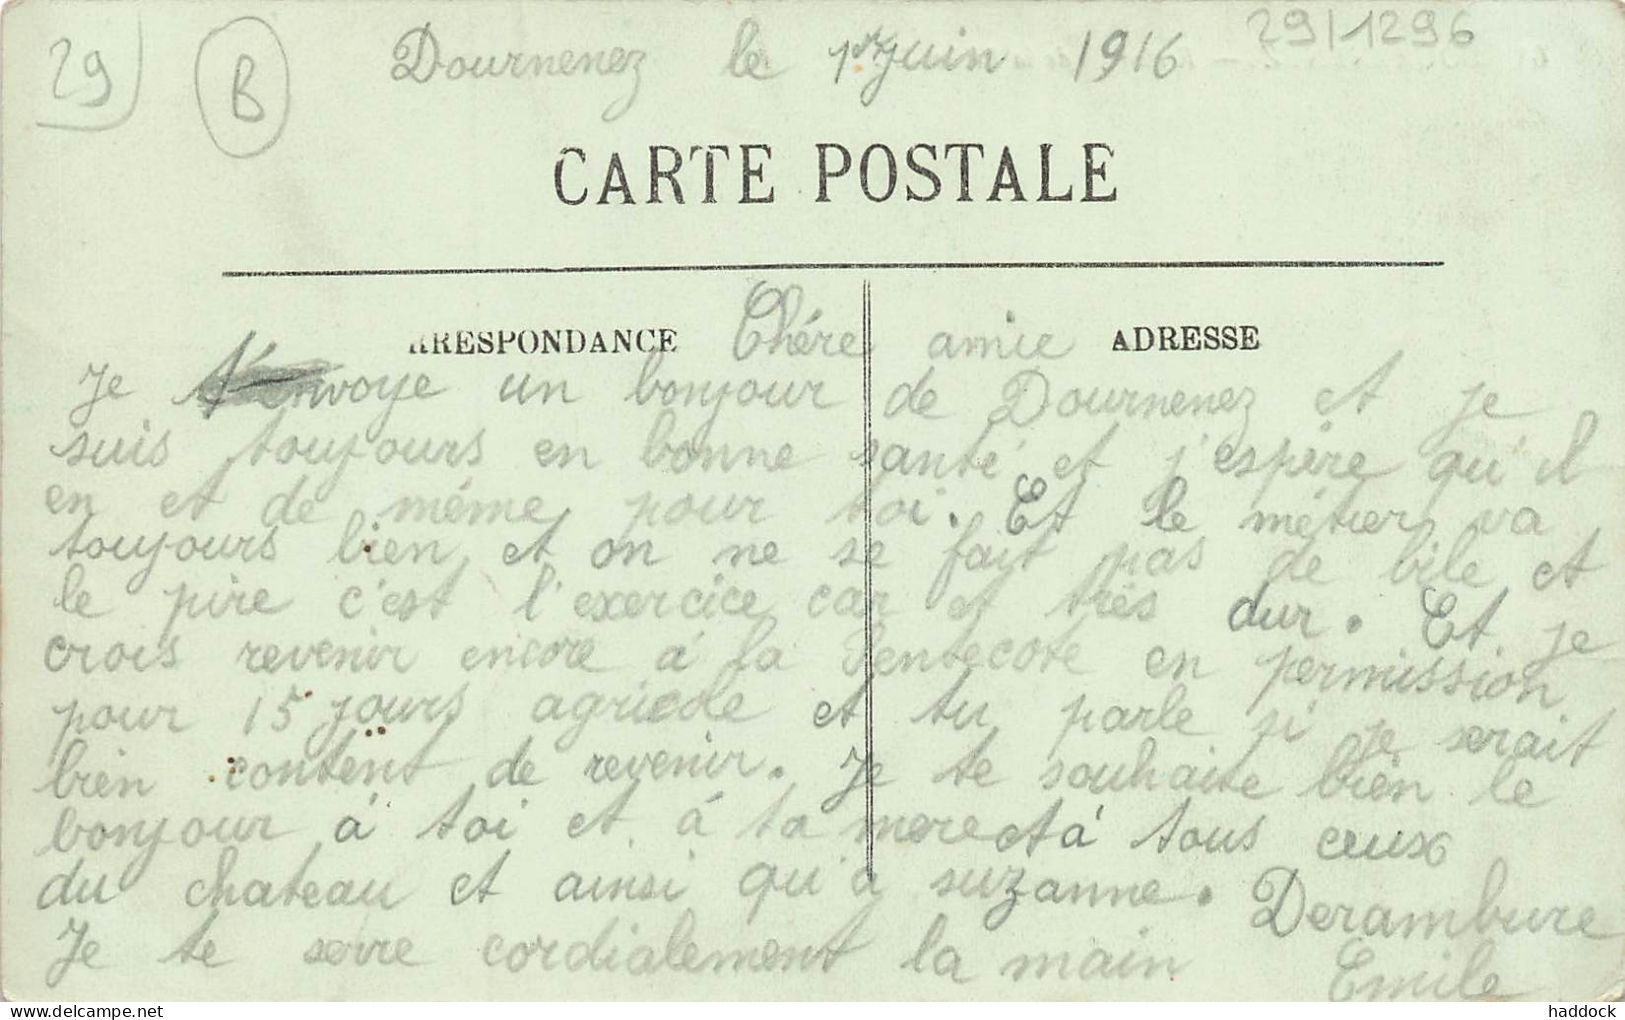 29 B Dournenez le 1er Juin 1916 29/1296
CARTE POSTALE
RRESPONDANCE Chére amie ADRESSE
Je t'envoye un bonjour de Dournenez et je
suis toujours en bonne santé et j'espère qu'il
en et de méme pour toi. Et le métier va
toujours bien et on ne se fait pas de bile et
le pire c'est l'exercice car et très dur. Et je
crois revenir encore á la Pentecote en permission
pour 15 jours agricole et tu parle si je serait
bien content de revenir. Je te souhaite bien le
bonjour á toi et á ta mere et á tous ceux
du chateau et ainsi qu'á suzanne. Derambure
Je te serre cordialement la main Emile
delcampe.net
haddock